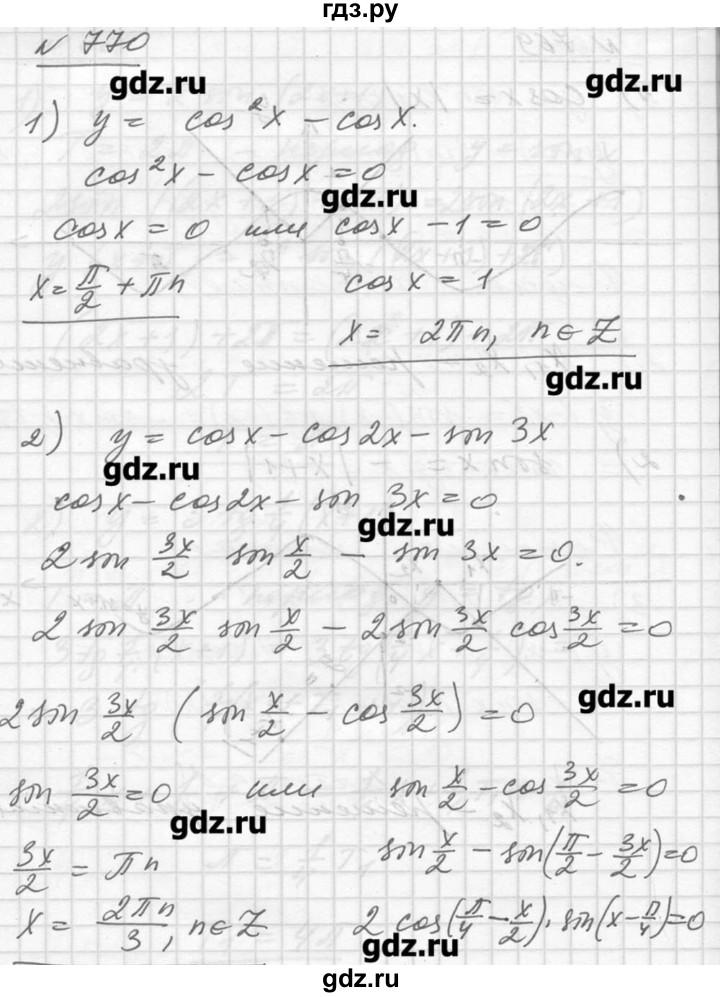 гдз.ру
№ 770
gdz.ru
gdz.ru
1) y = cos²x − cosx.
cos²x − cosx = 0
gdz.ru
cosx = 0 или cosx − 1 = 0
x = π/2 + πn cosx = 1
x = 2πn, n∈Z
gdz.ru
2) y = cosx − cos2x − sin 3x
gdz.ru
cosx − cos2x − sin 3x = 0.
gdz.ru
2 sin 3x/2 sin x/2 − sin 3x = 0.
2 sin 3x/2 sin x/2 − 2 sin 3x/2 cos 3x/2 = 0
gdz.ru
2 sin 3x/2 (sin x/2 − cos 3x/2) = 0
sin 3x/2 = 0 или sin x/2 − cos 3x/2 = 0
gdz.ru
3x/2 = πn sin x/2 − sin(π/2 − 3x/2) = 0
x = 2πn/3, n∈Z 2 cos(π/4 − x/2) · sin(x − π/4) = 0
gdz.ru
gdz.ru